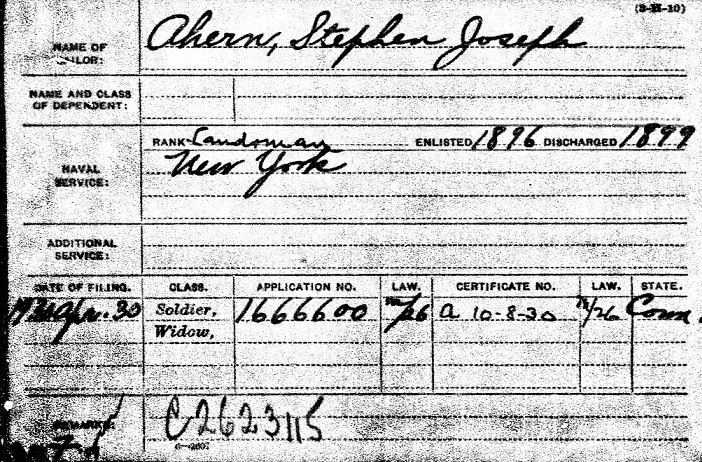 (3-H-10)
NAME OF SAILOR: Ahern, Stephen Joseph
NAME AND CLASS OF DEPENDENT:
NAVAL SERVICE: RANK Landsman ENLISTED 1896 DISCHARGED 1899
New York
ADDITIONAL SERVICE:
DATE OF FILING. CLASS. APPLICATION NO. LAW. CERTIFICATE NO. LAW. STATE.
Apr. 30 Soldier, 1666600 A 10-8-30 Conn.
Widow,
REMARKS: C-2623115